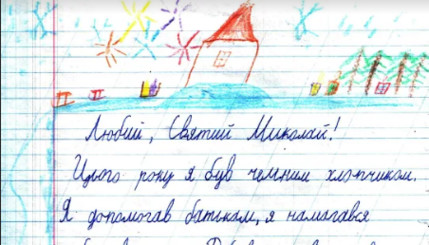 Любий, Святий Миколай!
Цього року я був чемним хлопчиком.
Я допомогав батькам, я намагався